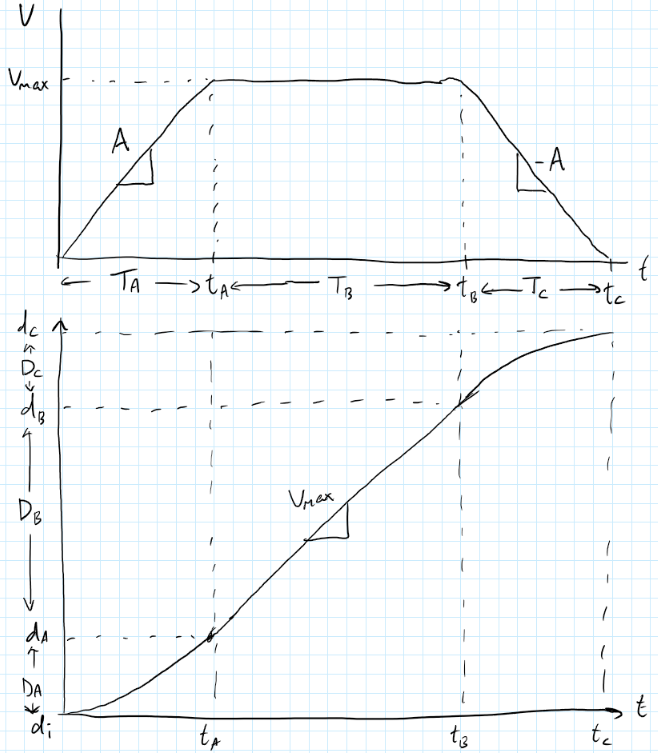 V
Vmax
A
-A
t
TA tA TB tB TC tC
dC
DC
dB
Vmax
DB
dA
DA
di
t
tA tB tC